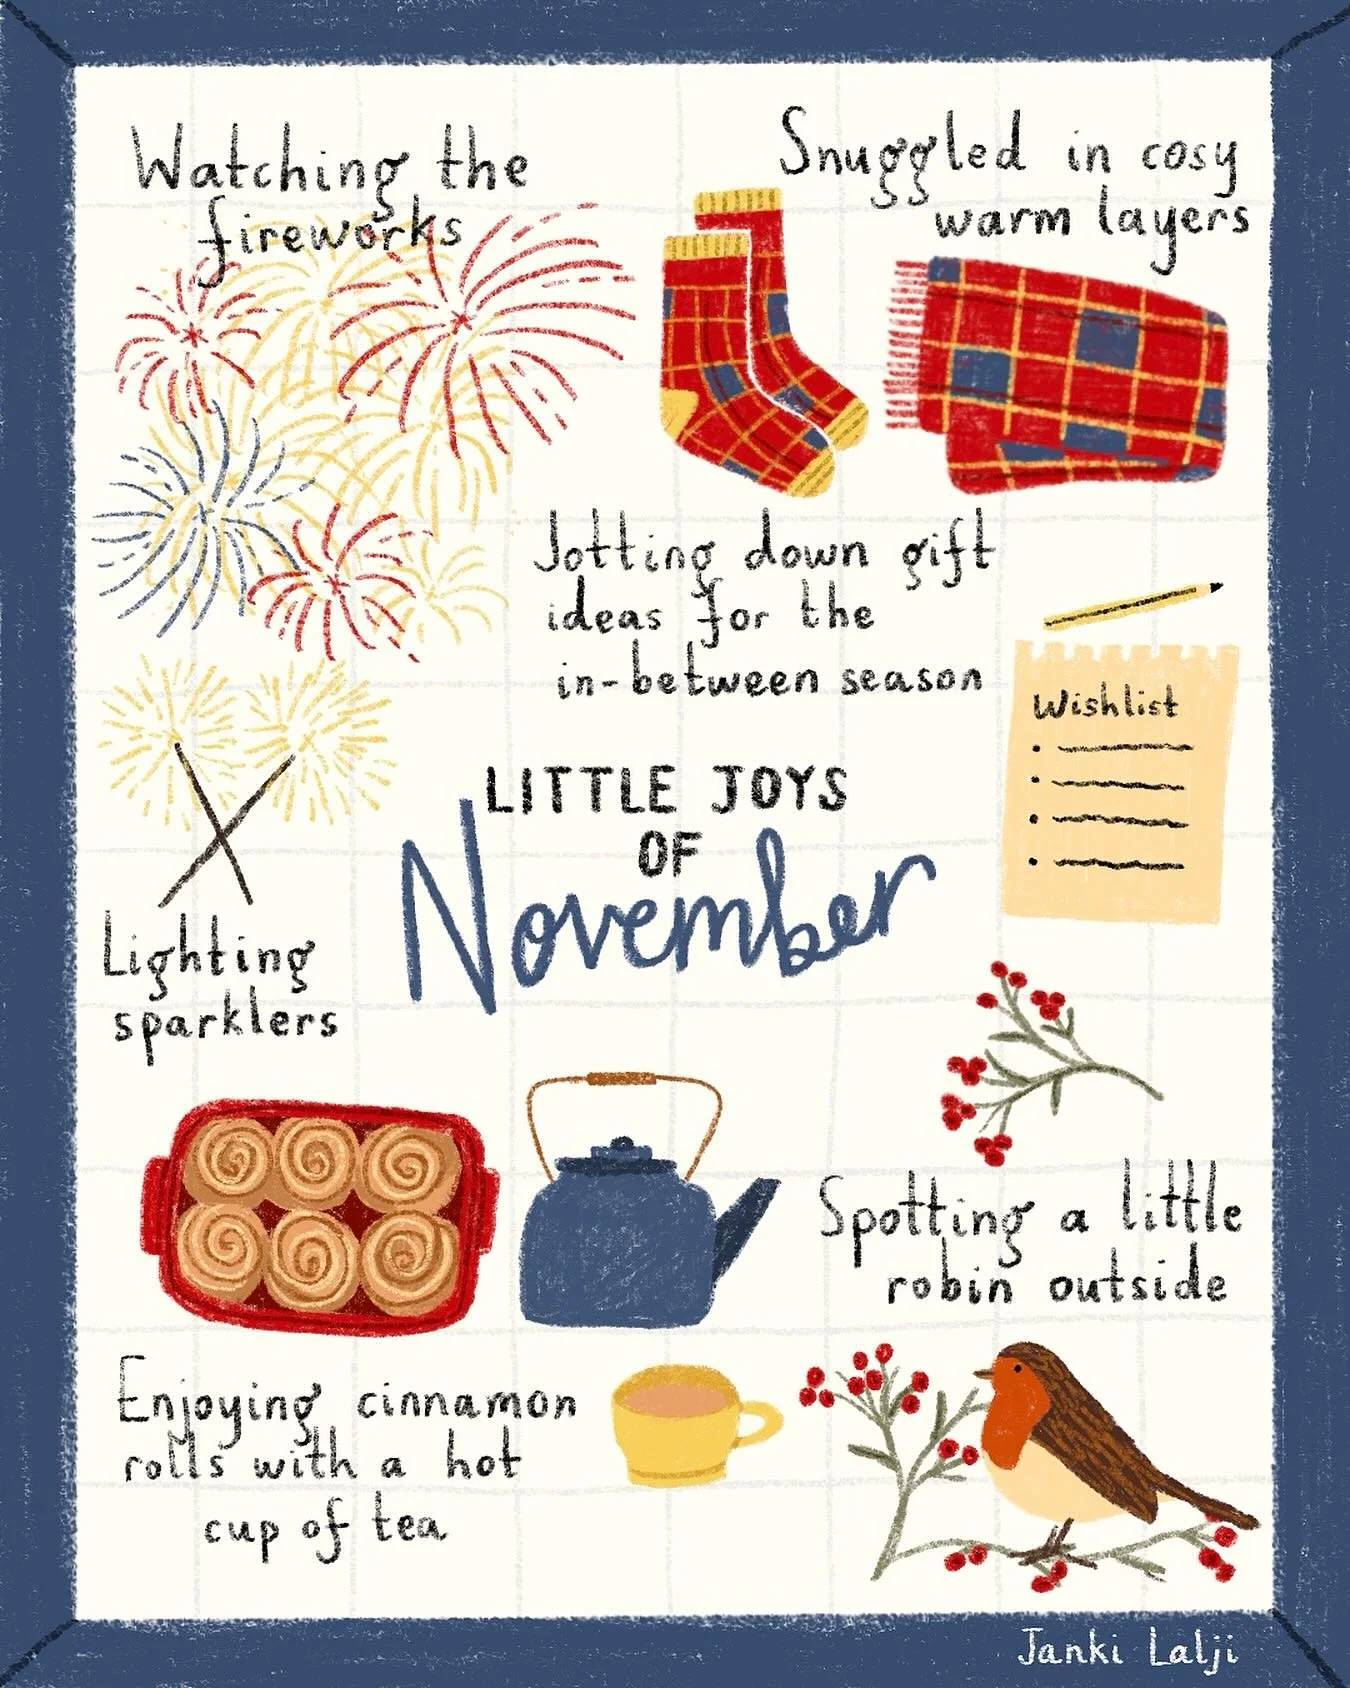 Watching the
fireworks
Snuggled in cosy
warm layers
Jotting down gift
ideas for the
in-between season
Wishlist
LITTLE JOYS
OF
November
Lighting
sparklers
Spotting a little
robin outside
Enjoying cinnamon
rolls with a hot
cup of tea
Janki Lalji